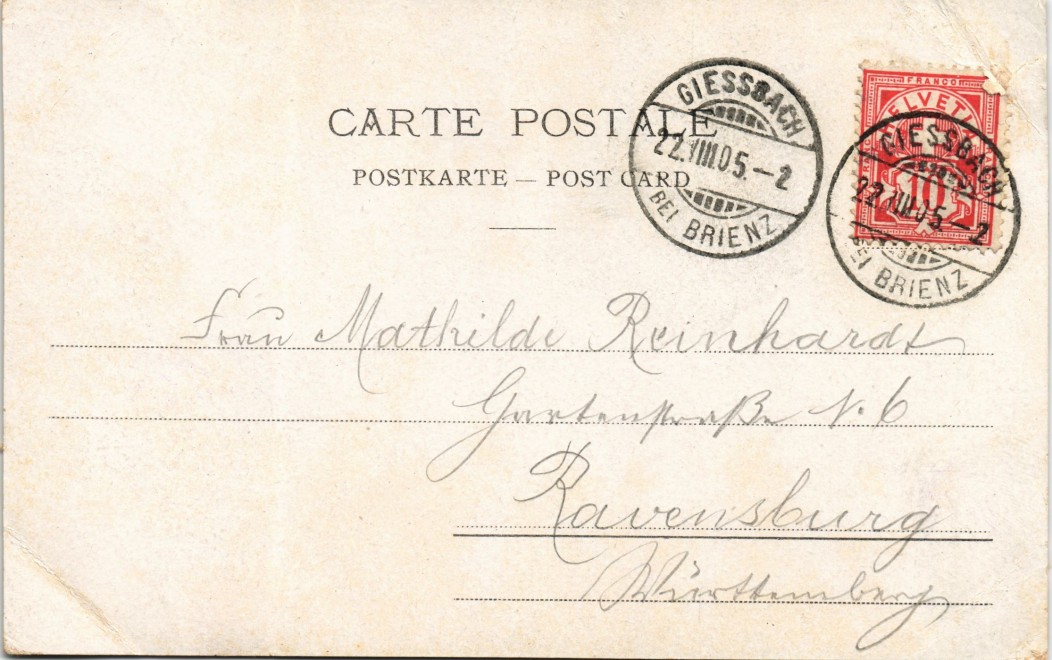 CARTE POSTALE
POSTKARTE — POST CARD
GIESSBACH
22.VIII.05.–2
BEI BRIENZ
FRANCO
HELVETIA
10
GIESSBACH
22.VIII.05–2
BEI BRIENZ
Frau Mathilde Reinhardt
Gartenstraße N. 6
Ravensburg
Württemberg